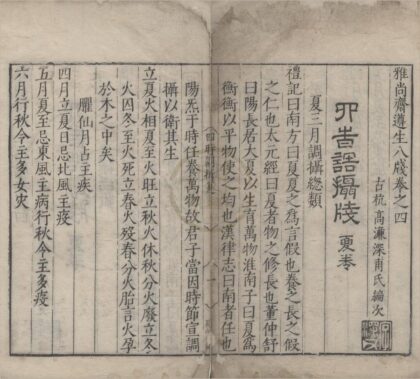 雅尚齋遵生八牋卷之四
古杭高濂深甫氏編次
四時調攝牋 夏卷
夏三月調攝總類
禮記曰南方曰夏夏之為言假也養之長之假
之仁也太元經曰夏者物之修長也董仲舒
曰陽長居大夏以生育萬物淮南子曰夏為
衡衡以平物使之均也漢律志曰南者任也
陽炁于時任養萬物故君子當因時節宣調
攝以衛其生
立夏火相夏至火旺立秋火休秋分火廢立冬
火囚冬至火死立春火殁春分火胎言火孕
於木之中矣
臞仙月占主疾
四月立夏日忌北風主疫
五月夏至忌東風主病行秋令主多疫
六月行秋令主多女災